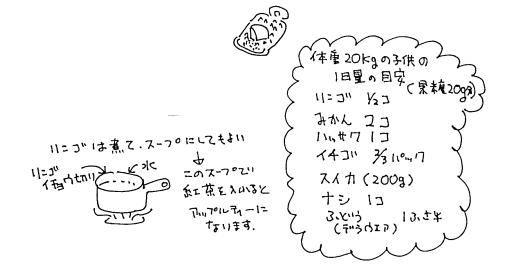 体重20Kgの子供の
1日量の目安
(果糖20g)
リンゴ 1/2コ
みかん 2コ
ハッサク 1コ
イチゴ 2/3パック
スイカ (200g)
ナシ 1コ
ぶどう 1ふさ半
(デラウエア)
リンゴは煮て、スープにしてもよい
リンゴ
イチョウ切り
水
↓
このスープで
紅茶を入れると
アップルティーに
なります。